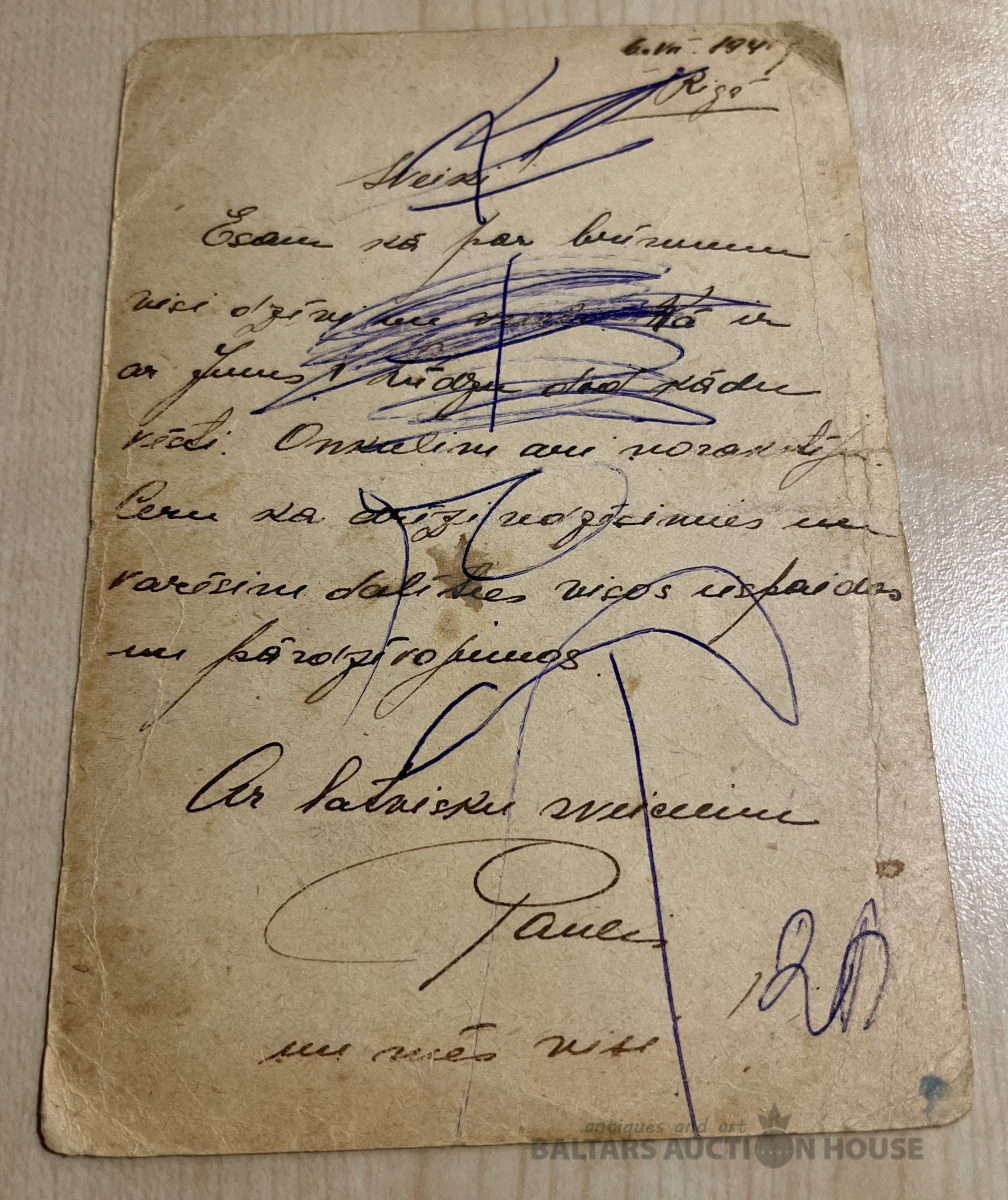 6.VII. 194
Rīgā
Sveiki!
Esam kā par brīnumu
visi dzīvi un Kā ir
ar Jums? Lūdzu dod kādu
vēsti. Onkulim arī norakstīju.
Ceru ka drīzi redzēsimies un
varēsim dalīties visos iespaidos
un pārdzīvojumos.
Ar latvisku sveicienu
Pauls
un mēs visi
antiques and art
BALTARS AUCTION HOUSE